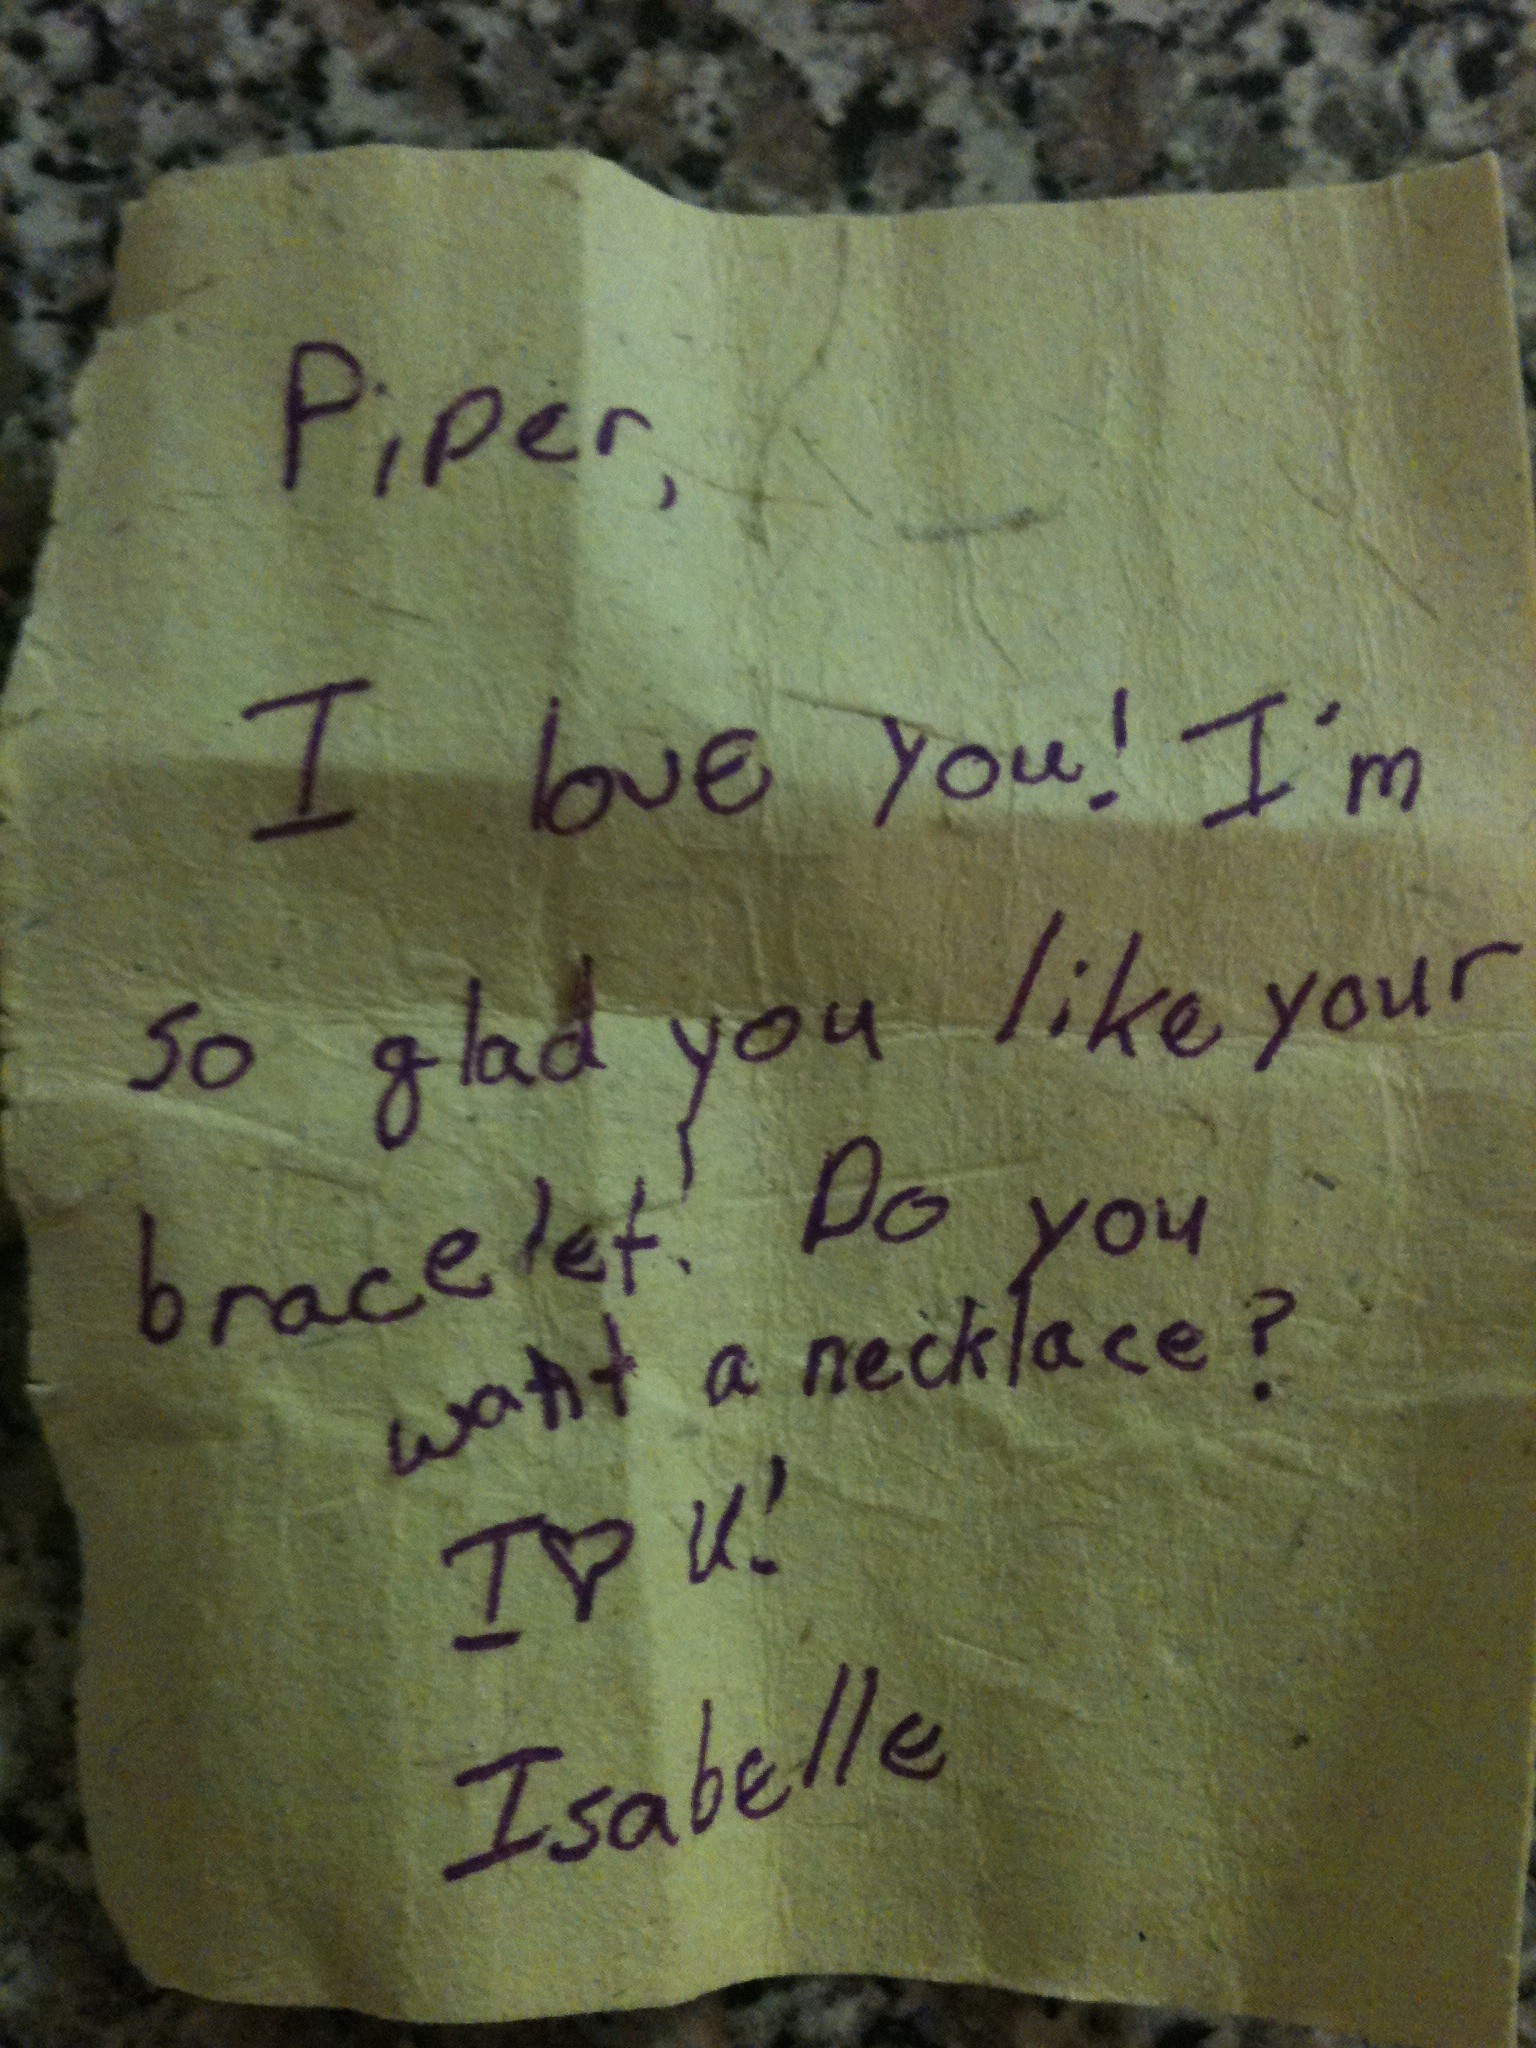 Piper,
I love you! I'm
so glad you like your
bracelet. Do you
want a necklace?
I ♡ U!
Isabelle